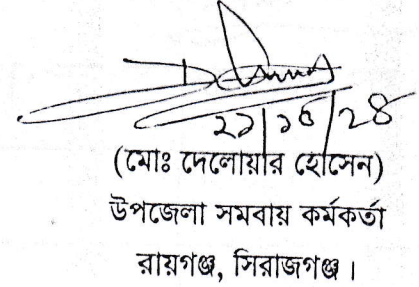 (মোঃ দেলোয়ার হোসেন)
উপজেলা সমবায় কর্মকর্তা
রায়গঞ্জ, সিরাজগঞ্জ ।